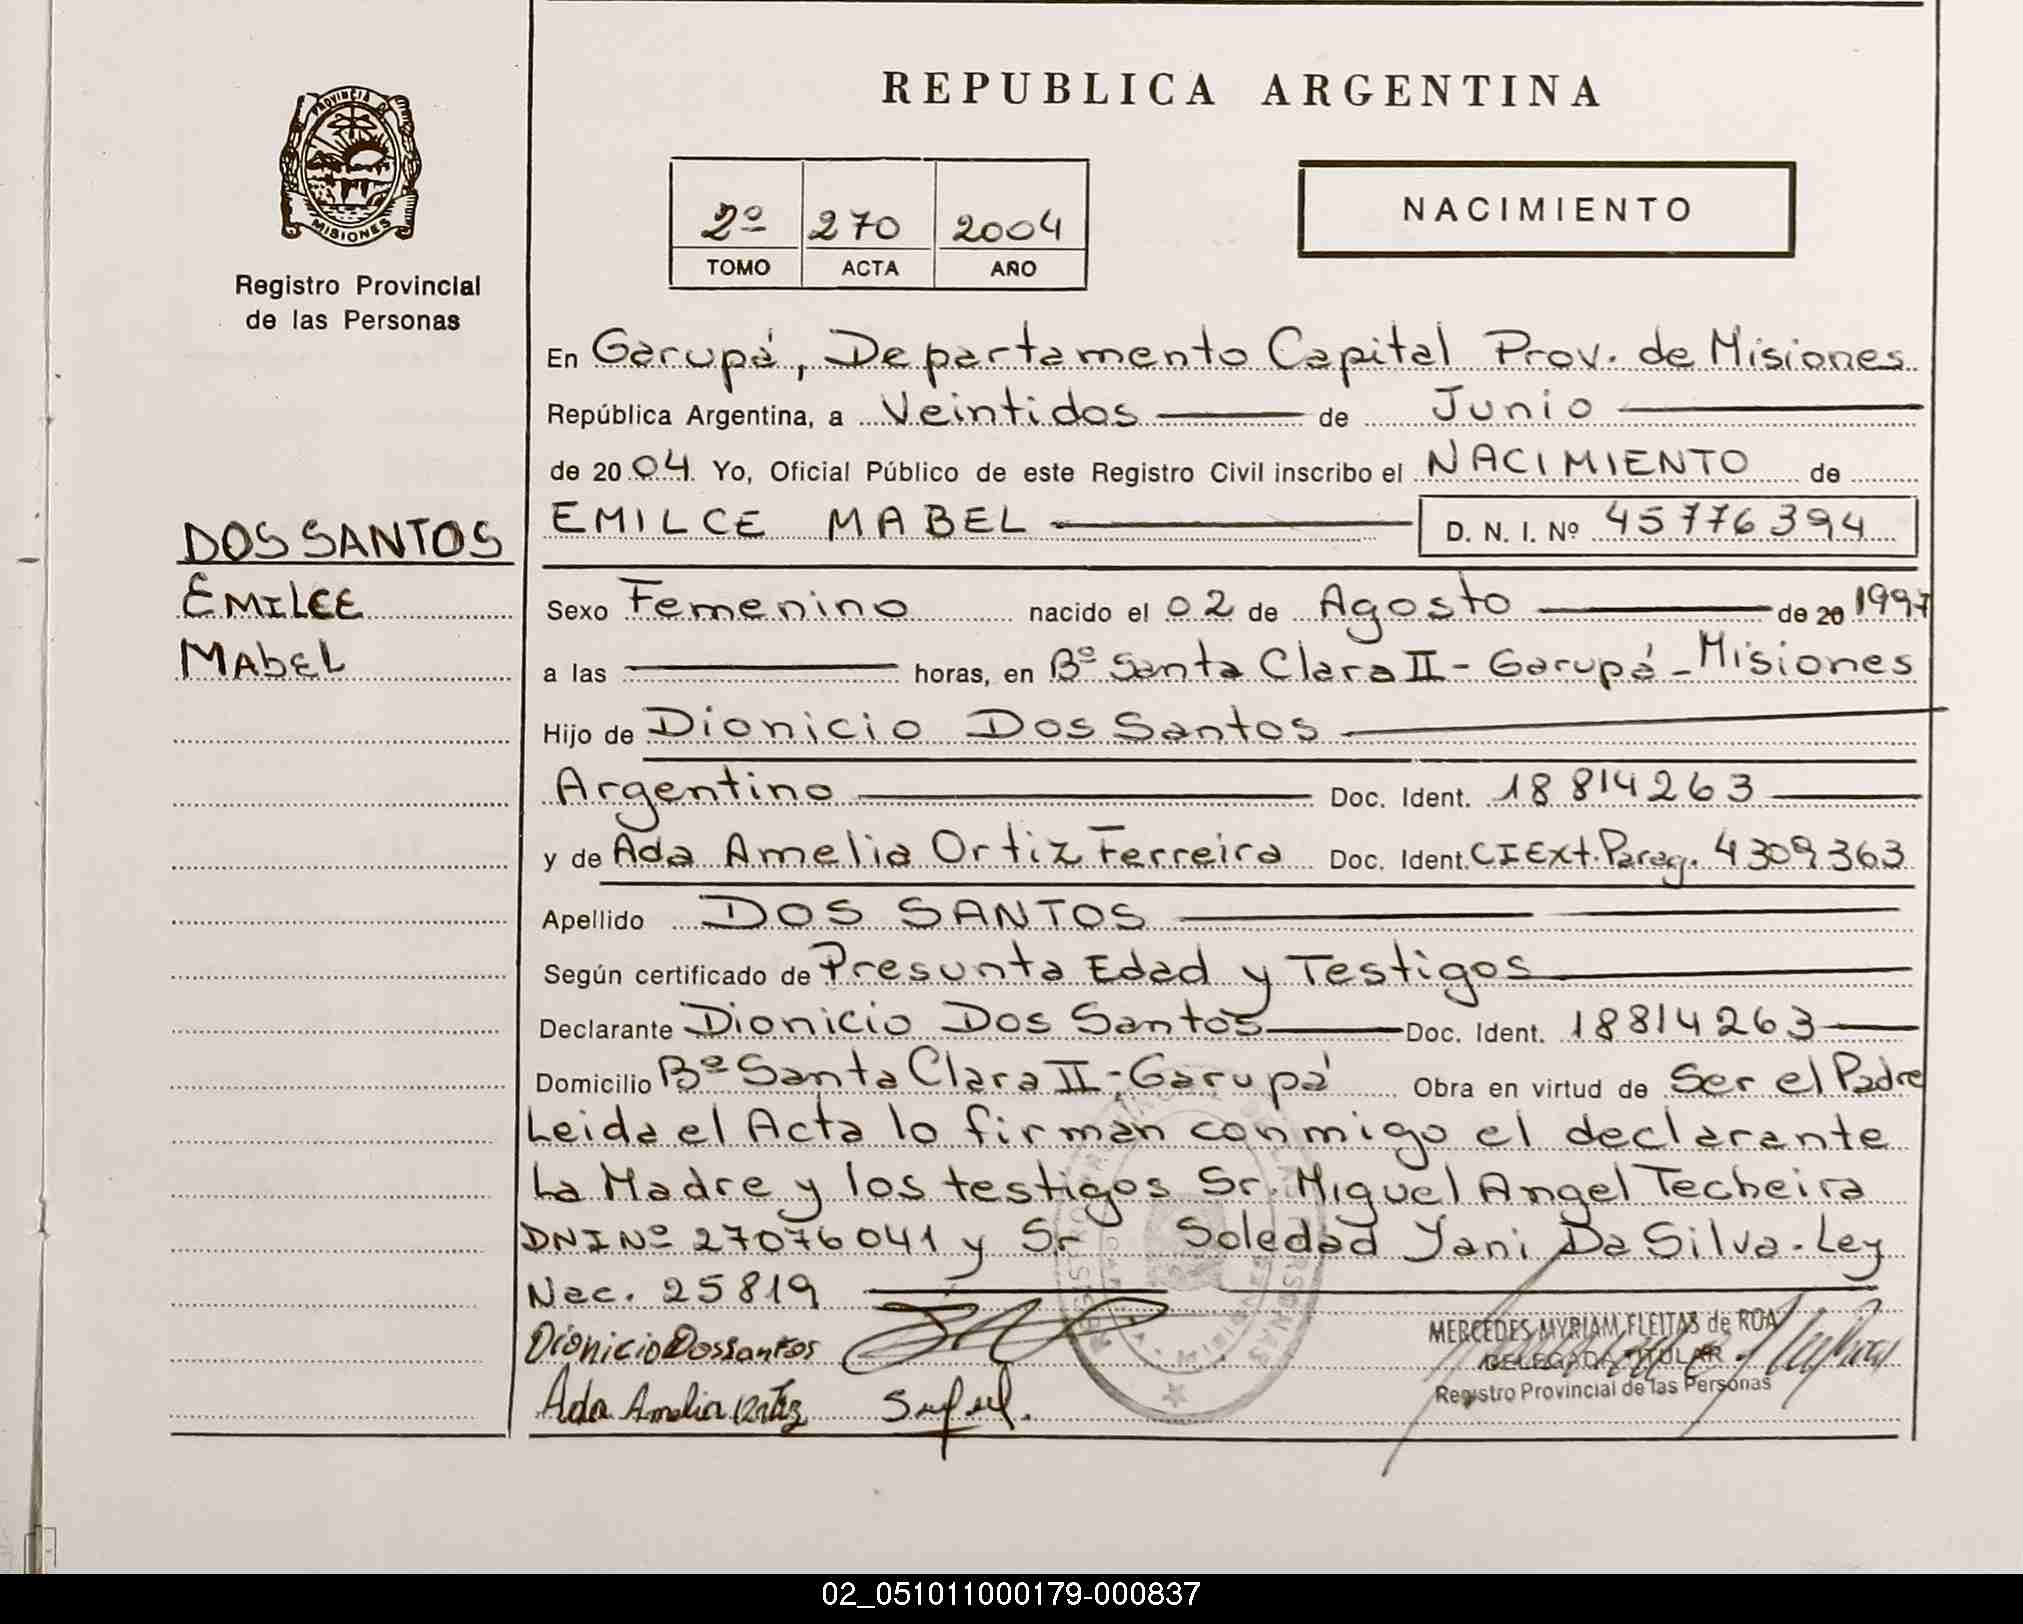 REPUBLICA ARGENTINA
PROVINCIA DE
MISIONES
Registro Provincial
de las Personas
2º 270 2004
TOMO ACTA AÑO
NACIMIENTO
En Garupá, Departamento Capital Prov. de Misiones
República Argentina, a Veintidos de Junio
de 2004. Yo, Oficial Público de este Registro Civil inscribo el NACIMIENTO de
EMILCE MABEL D. N. I. Nº 45776394
DOS SANTOS
EMILCE
MABEL
Sexo Femenino nacido el 02 de Agosto de 20 1997
a las horas, en Bº Santa Clara II - Garupá - Misiones
Hijo de Dionicio Dos Santos
Argentino Doc. Ident. 18814263
y de Ada Amelia Ortiz Ferreira Doc. Ident. CI Ext. Parag. 4309363
Apellido DOS SANTOS
Según certificado de Presunta Edad y Testigos
Declarante Dionicio Dos Santos Doc. Ident. 18814263
Domicilio Bº Santa Clara II - Garupá Obra en virtud de Ser el Padre
Leida el Acta lo firman conmigo el declarante
La Madre y los testigos Sr. Miguel Angel Techeira
DNI Nº 27076041 y Sr Soledad Yani Da Silva - Ley
Nac. 25819
Dionicio Dossantos
Ada Amelia Ortiz
MERCEDES MYRIAM FLEITAS de ROA
DELEGADA TITULAR
Registro Provincial de las Personas
02_051011000179-000837